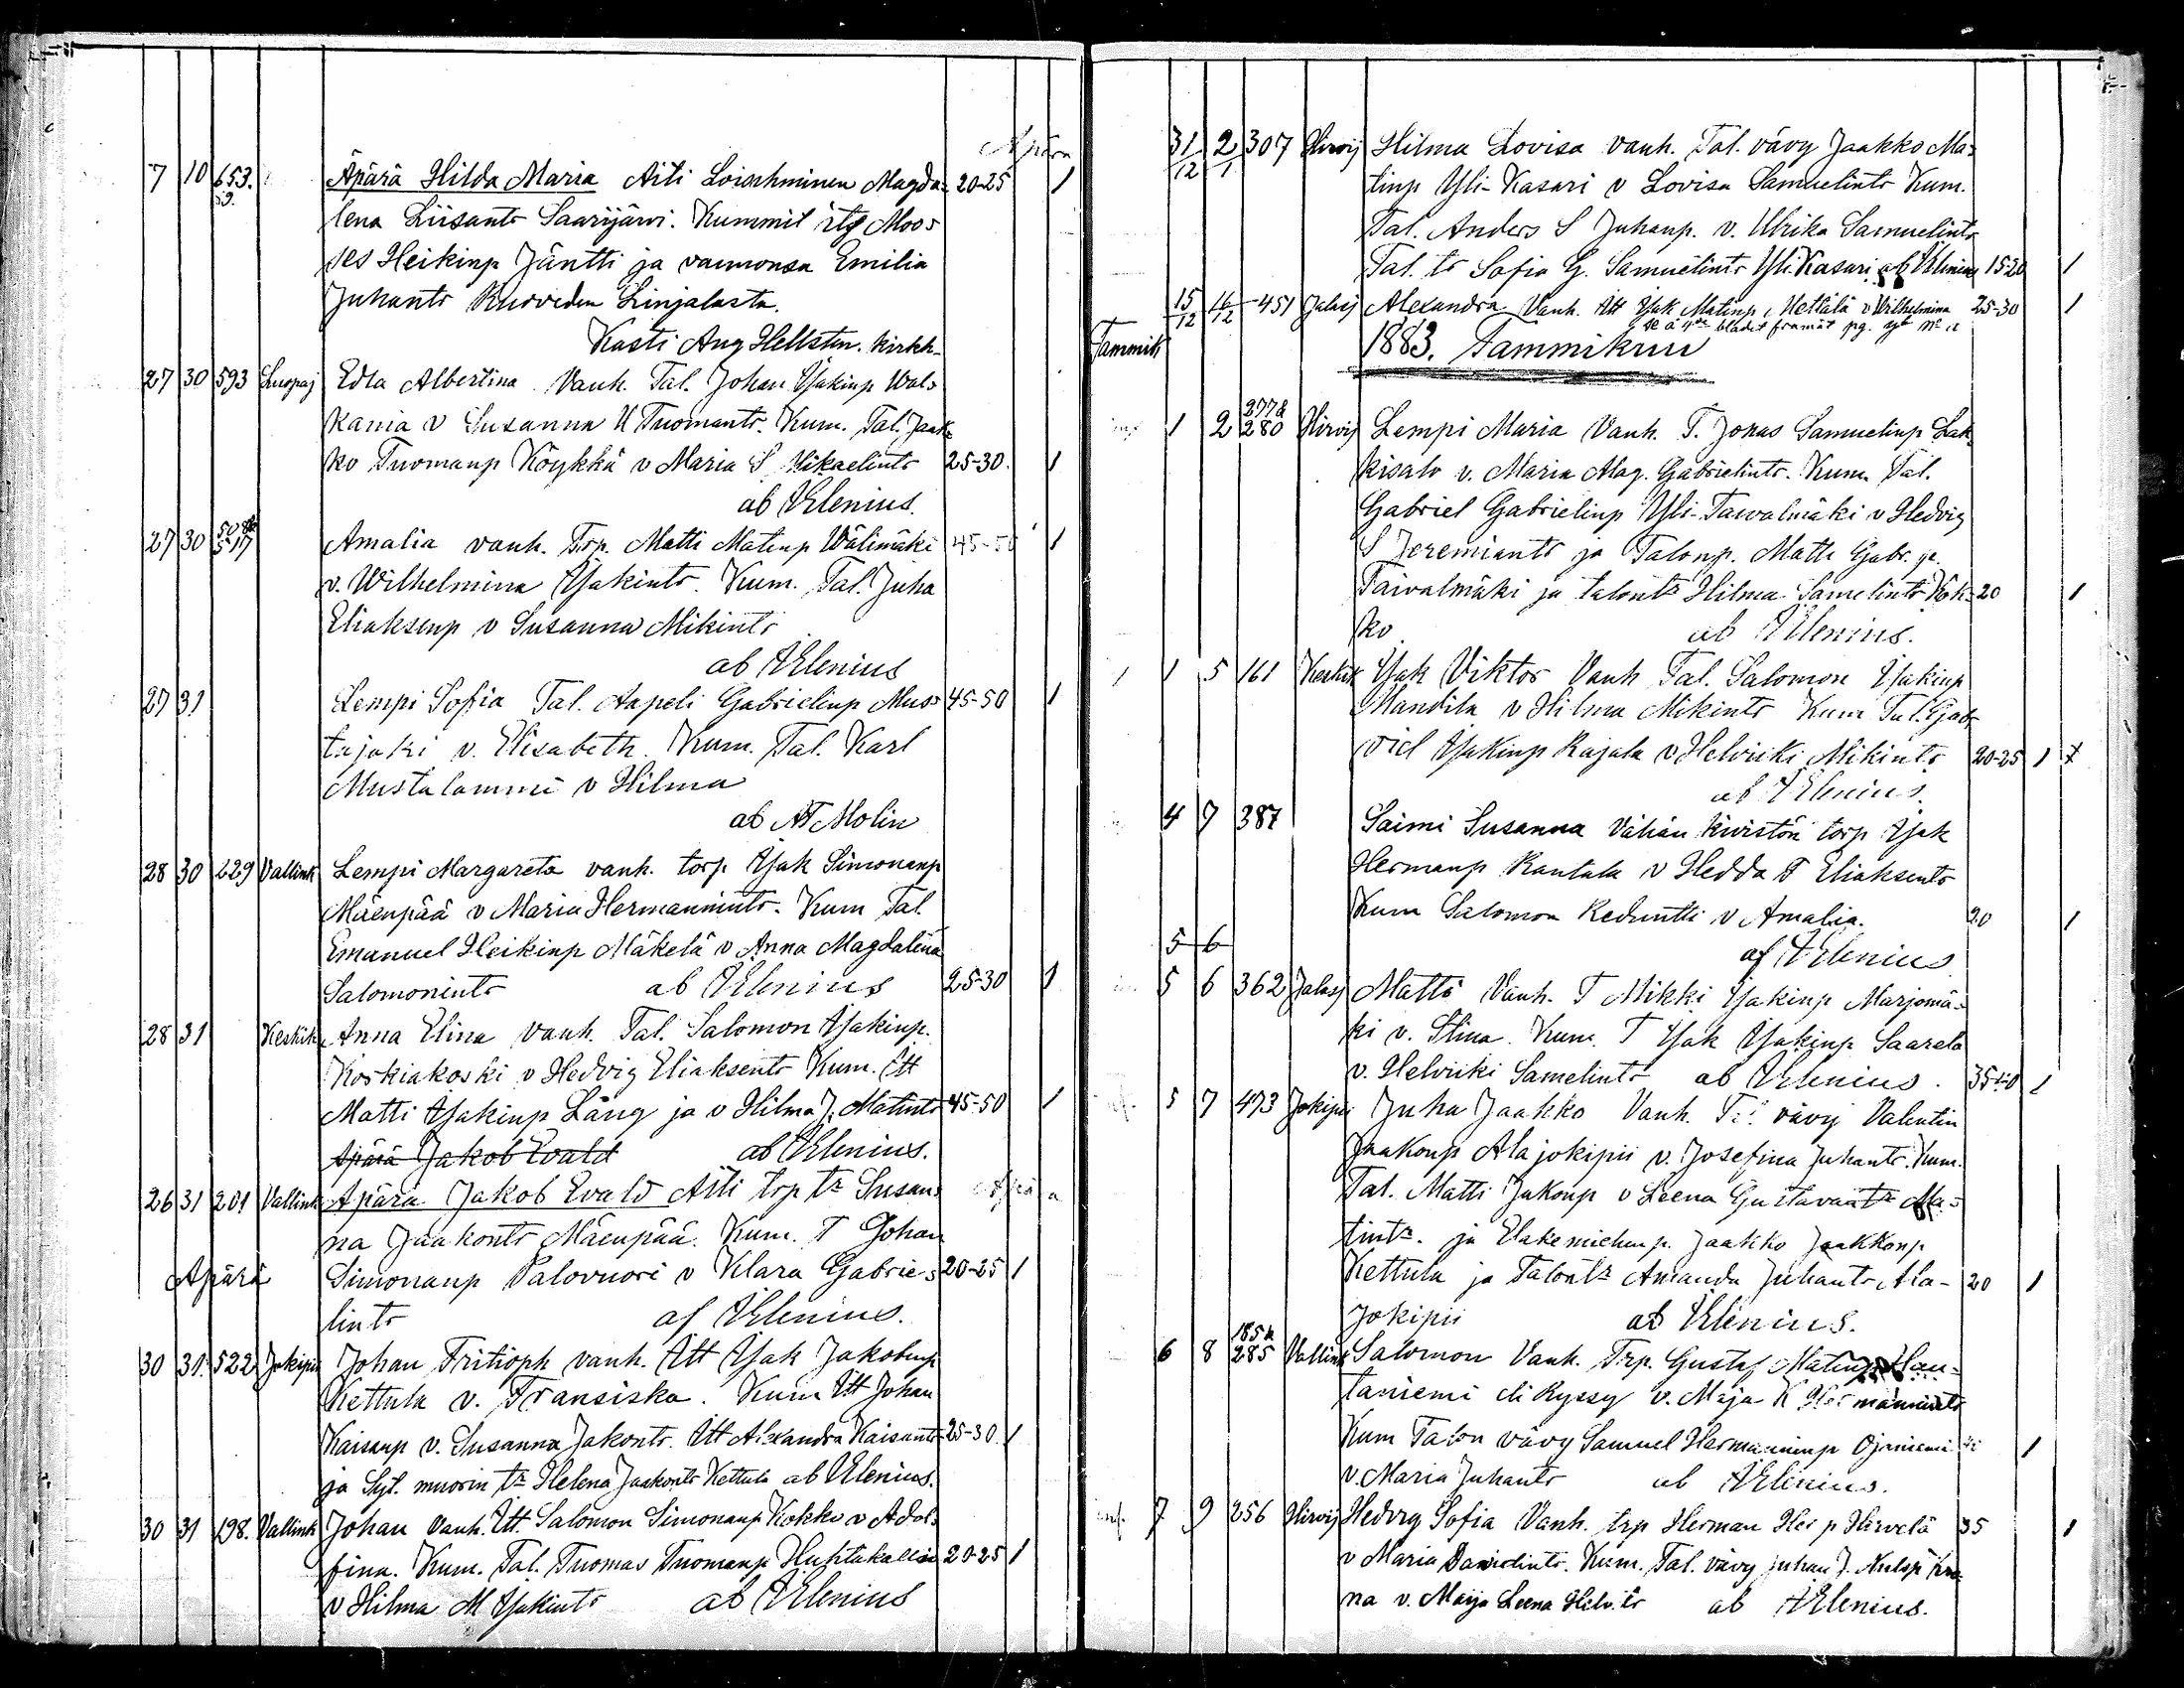 Apära
7 10 653. Äpärä Hilda Maria Äiti Loischminen Magda- 20-25 1
59. lena Liisantr Saarijärvi. Kummit itg Moo-
ses Heikinp Jäntti ja vaimonsa Emilia
Juhantr Linjalasta.
Kasti Aug Hellsten. kirkh.
27 30 593 Luopaj Edla Albertina. Vanh. Tal. Johan Isakinp Wal-
kania v Susanna U Tuomantr. Kum. Tal. Jaak-
ko Tuomanp Köykkä v Maria S. Mikaelintr 25-30. 1
ab Elenius.
27 30 517 Amalia vanh. Trp. Matti Matinp Wälimäki 45-50 1
v. Wilhelmina Isakintr. Kum. Tal. Juha
Eliaksenp v Susanna Mikintr
ab Elenius
27 31 Lempi Sofia Tal. Aapeli Gabrielinp Mus- 45-50 1
tajoki v. Elisabeth. Kum. Tal. Karl
Mustalammi v Hilma
ab AT Molin
28 30 229 Vallink Lempi Margareta vanh. torp Isak Simonanp
Mäenpää v Maria Hermannintr. Kum Tal.
Emanuel Heikinp Mäkelä v Anna Magdalena
Salomonintr ab Elenius 25-30 1
28 31 Keskik Anna Elina vanh. Tal. Salomon Isakinp.
Koskiakoski v Hedvig Eliaksentr Kum. Itt
Matti Isakinp Lång ja v Hilma J. Matintr 45-50 1
Apärä Jakob Evald ab Elenius.
26 31 201 Vallink Apärä Jakob Evald Äiti trp tr Susan- Apära
na Jaakontr Mäenpää. Kum. T Johan
Apärä Simonanp Palovuori v Klara Gabrie- 20-25 1
lintr af Elenius.
30 31. 522 Jokipii Johan Fritioph vanh. Itt Isak Jakobinp
Kettula v. Fransiska. Kum Itt Johan
Kaisanp v. Susanna Jakontr. Itt Alexandra Kaisantr 25-30. 1
ja Syt. muorin tr Helena Jaakontr Kettula ab Elenius.
30 31 198. Vallink Johan Vanh. Itt. Salomon Simonanp Kokko v Adol-
fina. Kum. Tal. Tuomas Tuomanp Huhtakallio 20-25 1
v Hilma M Isakintr ab Elenius
31/12 2/1 307 Hirvij Hilma Lovisa vanh. Tal. vävy Jaakko Ma-
tinp Yli-Kasari v Lovisa Samuelintr Kum.
Tal. Anders S Juhanp. v. Ulrika Samuelintr
Tal. tr Sofia G. Samuelintr Yli Kasari ab Elenius 15-20 1
15/12 16/12 451 Jalasj Alexandra Vanh. Itt Isak Matinp Mettälä v Wilhelmina 25-30 1
bladet framåt pg.
Tammik 1883. Tammikuu
1 2 277 & 280 Hirvij Lempi Maria Vanh. T. Jonas Samuelinp Lak
kisalo v. Maria Mag. Gabrielintr. Kum. Tal.
Gabriel Gabrielinp Yli-Taivalmäki v Hedvig
S Jeremiantr ja Talonp. Matti Gabr.
Taivalmäki ja talontr Hilma Samelintr Kok- 20 1
ko ab Elenius.
1 5 161 Keskik Isak Viktor Vanh Tal. Salomon Isakinp
Mandila v Hilma Mikintr Kum Tal. Gab
riel Isakinp Rajala v Helviiki Mikintr 20-25 1 +
ab Elenius.
4 7 387 Saimi Susanna Vähän kiviston torp Isak
Hermanp Rantala v Hedda T Eliaksentr
Kum Salomon v Amalia. 20 1
5 6
af Elenius
5 6 362 Jalasj Matti Vanh. T Mikki Isakinp Marjomä-
ki v. Stina. Kum. T Isak Isakinp Saarela
v. Helviiki Samelintr ab Elenius. 35-40 1
5 7 473 Jokipii Juha Jaakko Vanh. Tal. vävy Valentin
Jaakonp Alajokipii v. Josefina Juhantr. Kum.
Tal. Matti Jakonp v Leena Gustavantr Ma-
tintr. ja Eläkemiehenp. Jaakko Jaakkonp
Kettula ja Talontr Amanda Juhantr Ala- 20 1
jokipii ab Elenius.
6 8 185 & 285 Vallink Salomon Vanh. Trp. Gustaf Matinp Hau-
taniemi eli Ryssy v. Maja K Hermannintr
Kum Talon vävy Samuel Hermanninp Ojaniemi 1
v. Maria Juhantr ab Elenius.
7 9 256 Hirvij Hedvig Sofia Vanh. trp Herman Her p Hirvelä 35 1
v Maria Davidintr. Kum. Tal. vävy Juhan J.
na v. Maija Leena ab Elenius.